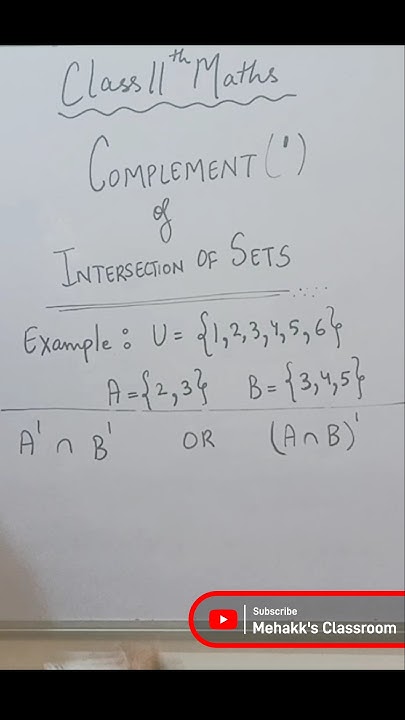 Class 11th Maths
COMPLEMENT (')
of
INTERSECTION OF SETS
Example : U = {1,2,3,4,5,6}
A = {2,3} B = {3,4,5}
A' ∩ B' OR (A ∩ B)'
Subscribe
Mehakk's Classroom